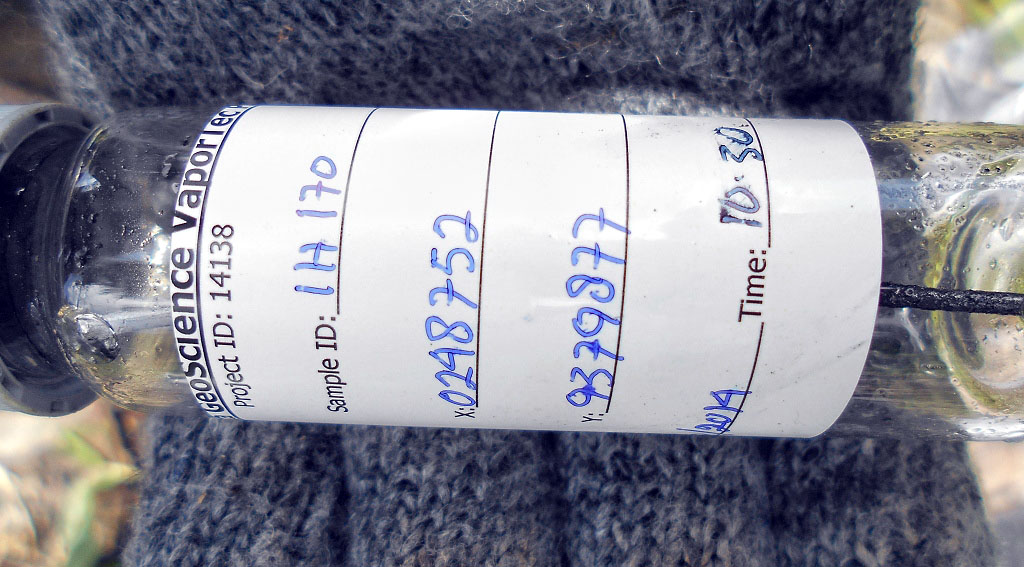 Geoscience VaporTech
Project ID: 14138
Sample ID: 1H170
X: 0248752
Y: 9379877
/2014 Time: 10:30